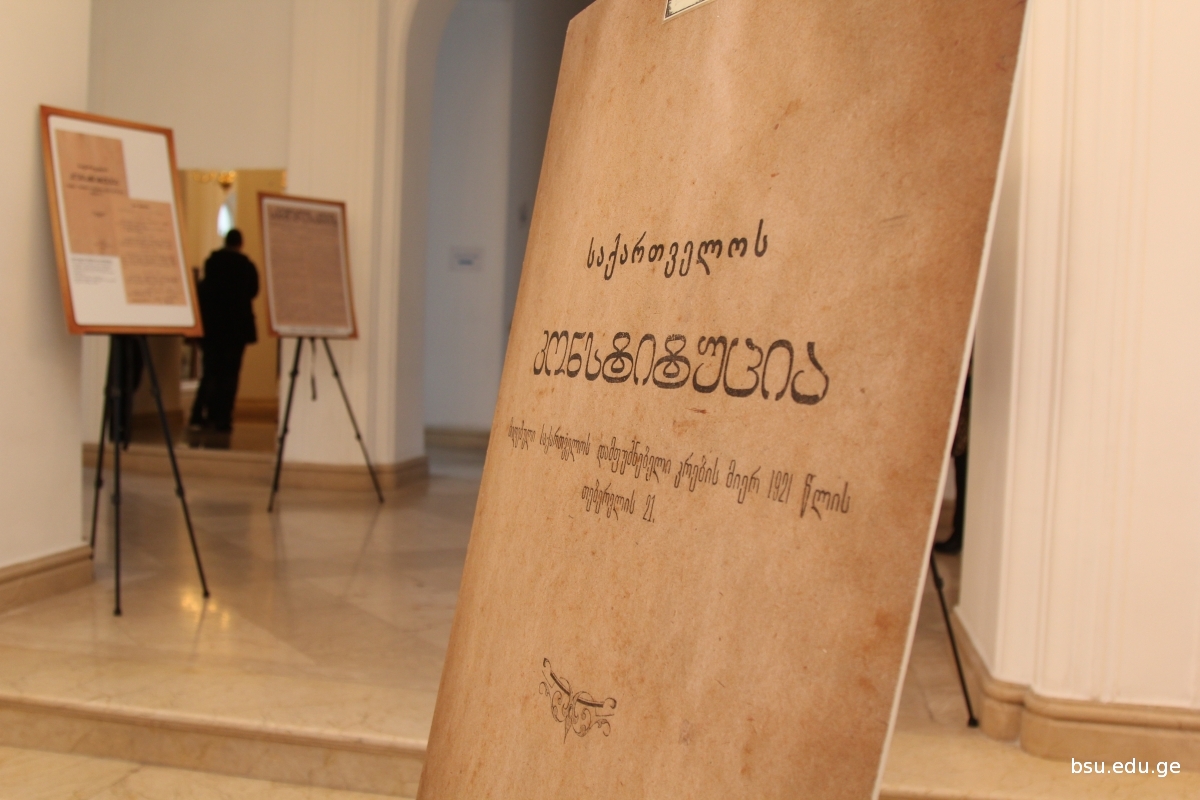 საქართველოს
კონსტიტუცია
მიღებული საქართველოს დამფუძნებელი კრების მიერ 1921 წლის
თებერვლის 21.
bsu.edu.ge